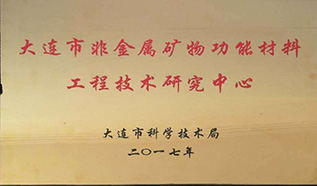 大连市非金属矿物功能材料
工程技术研究中心
大连市科学技术局
二〇一七年